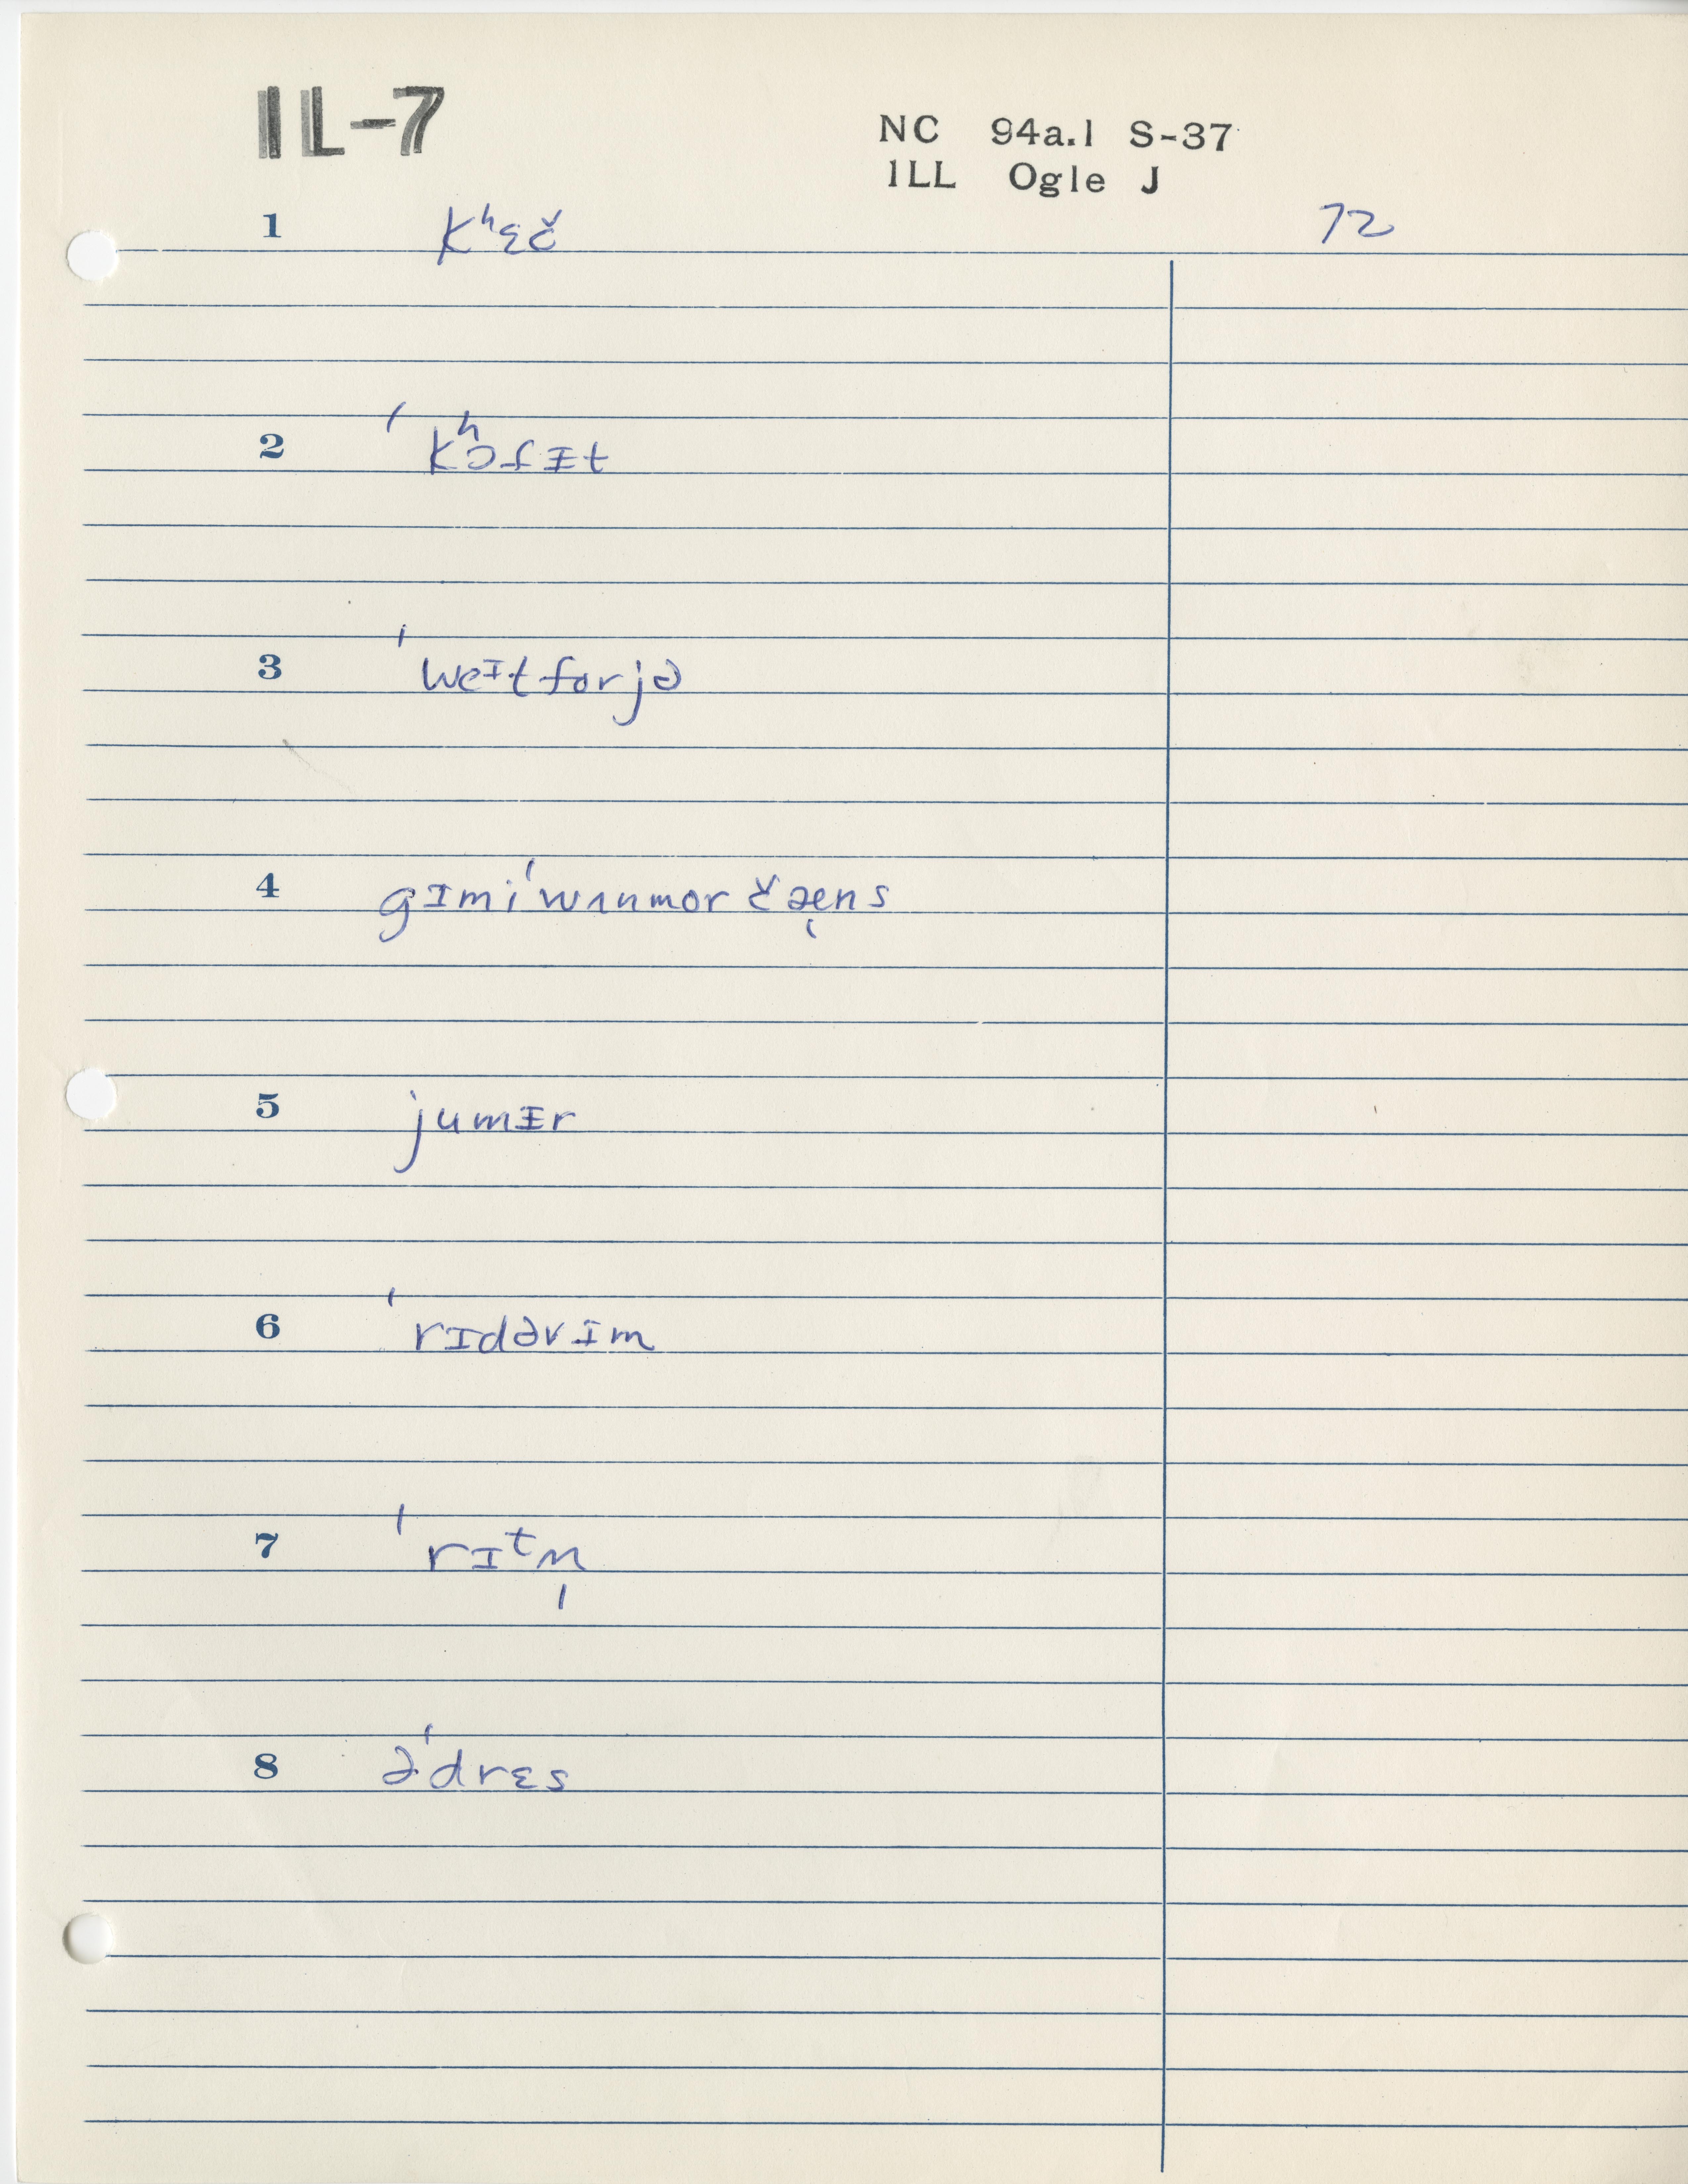 IL-7
NC 94a.1 S-37
ILL Ogle J
72
1 kʰɛč
2 ˈkʰɔfɨt
3 ˈweɪtforjə
4 gɪmiˈwʌnmor čæ̨ns
5 jumɨr
6 ˈrɪdəvɨm
7 ˈrɪᵗn̩
8 əˈdrɛs